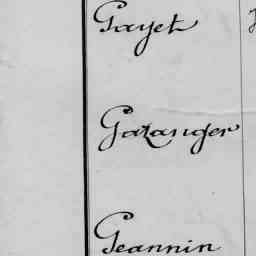 Gayet
Gazanger
Geannin